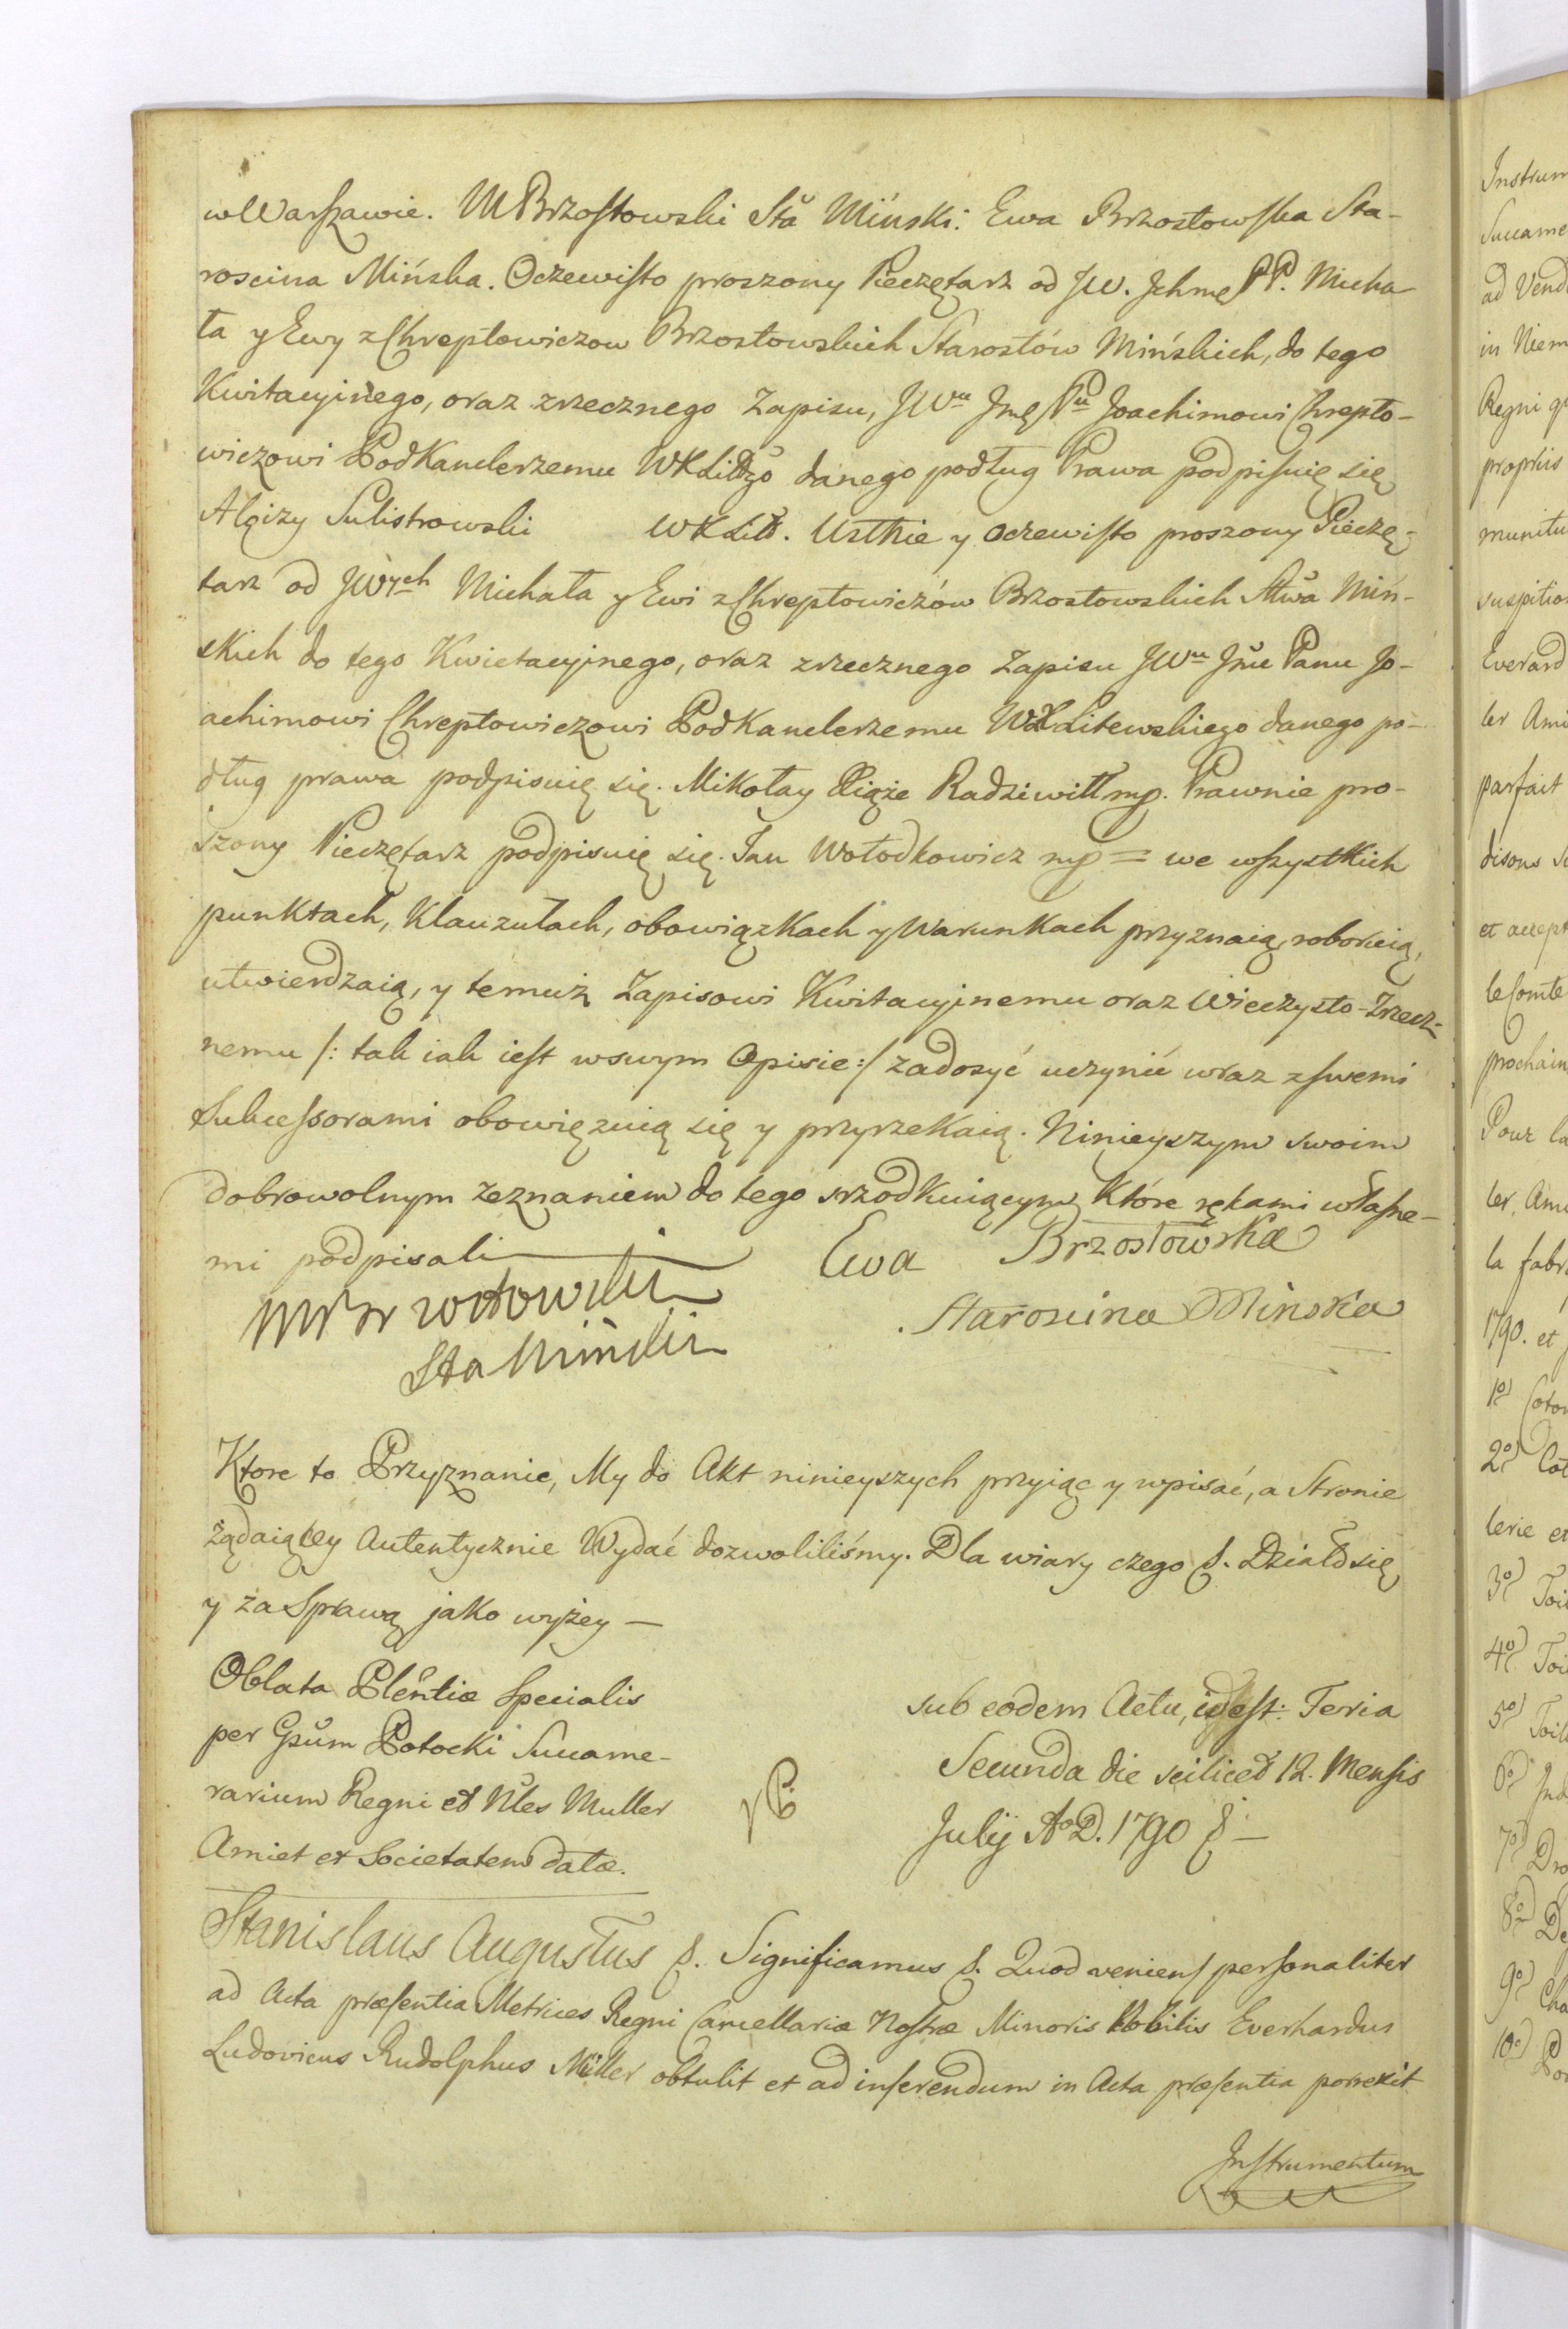 w Warszawie. M Brzostowski Stã Miński. Ewa Brzostowska Sta-
roscina Mińska. Oczewisto proszony Pieczętarz od JW. Jchmę PP. Micha
ła y Ewy z Chreptowiczow Brzostowskich Starostów Mińskich, do tego
Kwitacyinego, oraz zrzecznego Zapisu, JWu Jmę Pu Joachimowi Chrepto-
wiczowi PodKanclerzemu WXLittgo danego podług Prawa podpisuię się
Aloizy Sulistrowski WXLitt. Ustnie y oczewisto proszony Pieczę-
tarz od JWych Michała y Ewi z Chreptowiczów Brzostowskich Sttwa Miń-
skich do tego Kwietacyjnego, oraz zrzecznego Zapisu JWu Jmę Panu Jo-
achimowi Chreptowiczowi PodKanclerzemu WXLitewskiego danego po-
dług prawa podpisuię się. Mikołay Xiąże Radziwiłł mp. Prawnie pro-
szony Pieczętarz podpisuię się. Jan Wołodkowicz mp = we wszystkich
punktach, Klauzułach, obowiązkach y Warunkach przyznaią, roboruią,
utwierdzaią, y temuż Zapisowi Kwitacyjnemu oraz Wieczysto-Zrzecz-
nemu /: tak iak iest w swym Opisie :/ zadosyć uczynić wraz z swemi
Sukcessorami obowięzuią się y przyrzekaią. Ninieyszym swoim
dobrowolnym zeznaniem do tego srzodkuiącym, Które rękami własne-
mi podpisali
Ewa Brzostowska
MBrzostowski
Starościna Mińska
Sta Miński
Ktore to Przyznanie, My do Akt ninieyszych przyiąc y wpisać, a Stronie
żądaiącey Autentycznie Wydać dozwoliliśmy. Dla wiary czego &. Działo się
y za Sprawą jako wyżey —
Oblata Plẽntiæ Specialis
per Gsũm Potocki Succame-
rarium Regni et Nles Muller
Amiet et Societatem datæ.
sub eodem Actu, id est: Feria
Secunda die scilicet 12. Mensis
Julij Ao D. 1790 &. —
Stanislaus Augustus &. Significamus &. Quod veniens personaliter
ad Acta præsentia Metrices Regni Cancellariæ Nostræ Minoris Nobilis Everhardus
Ludovicus Rudolphus Müller obtulit et ad inserendum in Acta præsentia porrexit
Instrumentum
Instrum
Succame
ad Vend
in Niem
Regni q
propriis
munitu
suspitio
Everard
ler Ami
parfait
disons
et accept
le Comte
prochain
Pour la
ler, Ami
la fabr
1790. et
1o Coton
2o Cot
lerie et
3o Toil
4o Toi
5o Toil
6o Ind
7o Dro
8o De
9o Cha
10o Por